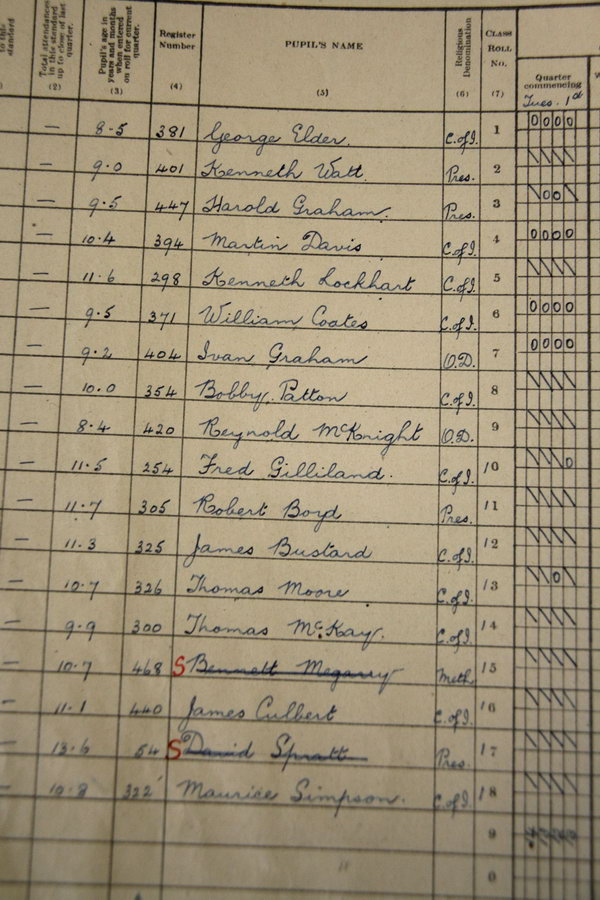 standard
Total attendances in this standard up to close of last quarter. Pupil's age in years and months when entered on roll for current quarter. Register Number PUPIL'S NAME Religious Denomination CLASS ROLL No. Quarter commencing
(2) (3) (4) (5) (6) (7) Tues. 1st
— 8·5 381 George Elder. C.of I. 1 0 0 0 0
— 9·0 401 Kenneth Watt. Pres. 2 \ \ \ \
— 9·5 447 Harold Graham. Pres. 3 \ 0 0 \
— 10·4 394 Martin Davis C.of I. 4 0 0 0 0
— 11·6 298 Kenneth Lockhart C.of I. 5 \ \ \ \
— 9·5 371 William Coates C.of I. 6 0 0 0 0
— 9·2 404 Ivan Graham O.D. 7 0 0 0 0
— 10·0 354 Bobby Patton C.of I. 8 \ \ \ \
— 8·4 420 Reynold McKnight O.D. 9 \ \ \ \
— 11·5 254 Fred Gilliland. C.of I. 10 \ \ \ 0
— 11·7 305 Robert Boyd Pres. 11 \ \ \ \
— 11·3 325 James Bustard C.of I. 12 \ \ \ \
— 10·7 326 Thomas Moore C.of I. 13 \ \ 0 \
— 9·9 300 Thomas McKay. C.of I. 14 \ \ \ \
— 10·7 468 S Bennett Megarry Meth. 15 \ \ \ \
— 11·1 440 James Culbert C.of I. 16 \ \ \ \
— 13·6 54 S David Spratt Pres. 17 \ \ \ \
— 10·8 322 Maurice Simpson. C.of I. 18 \ \ \ \
9
0